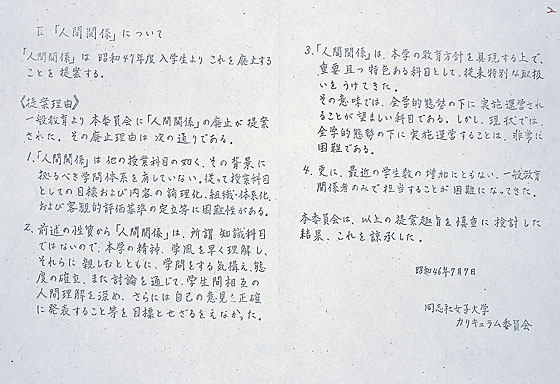 2
Ⅱ 「人間関係」について
「人間関係」は 昭和47年度入学生より これを廃止する
ことを 提案する。
《提案理由》
一般教育より 本委員会に「人間関係」の廃止が 提案
された。その廃止理由は 次の通りである。
1.「人間関係」は 他の授業科目の如く、その背景に
拠るべき学問体系を有していない。従って 授業科目
としての目標および内容の論理化、組織・体系化
および客観的評価基準の定立等に困難性がある。
2. 前述の性質から「人間関係」は、所謂 知識科目
ではないので、本学の精神、学風を早く理解し、
それらに 親しむとともに、学問をする気構え、態
度の確立、また討論を通じて、学生間相互の
人間理解を深め、さらには自己の意見を正確
に発表すること等を目標とせざるをえなかった。
3.「人間関係」は、本学の教育方針を具現する上で、
重要且つ特色ある科目として、従来特別な取扱
いをうけてきた。
その意味では、全学的態勢の下に実施運営され
ることが望ましい科目である。しかし、現状では、
全学的態勢の下に実施運営することは、非常に
困難である。
4. 更に、最近の学生数の増加にともない、一般教育
関係者のみで担当することが困難になってきた。
本委員会は、以上の提案趣旨を慎重に検討した
結果、これを諒承した。
昭和46年7月7日
同志社女子大学
カリキュラム委員会